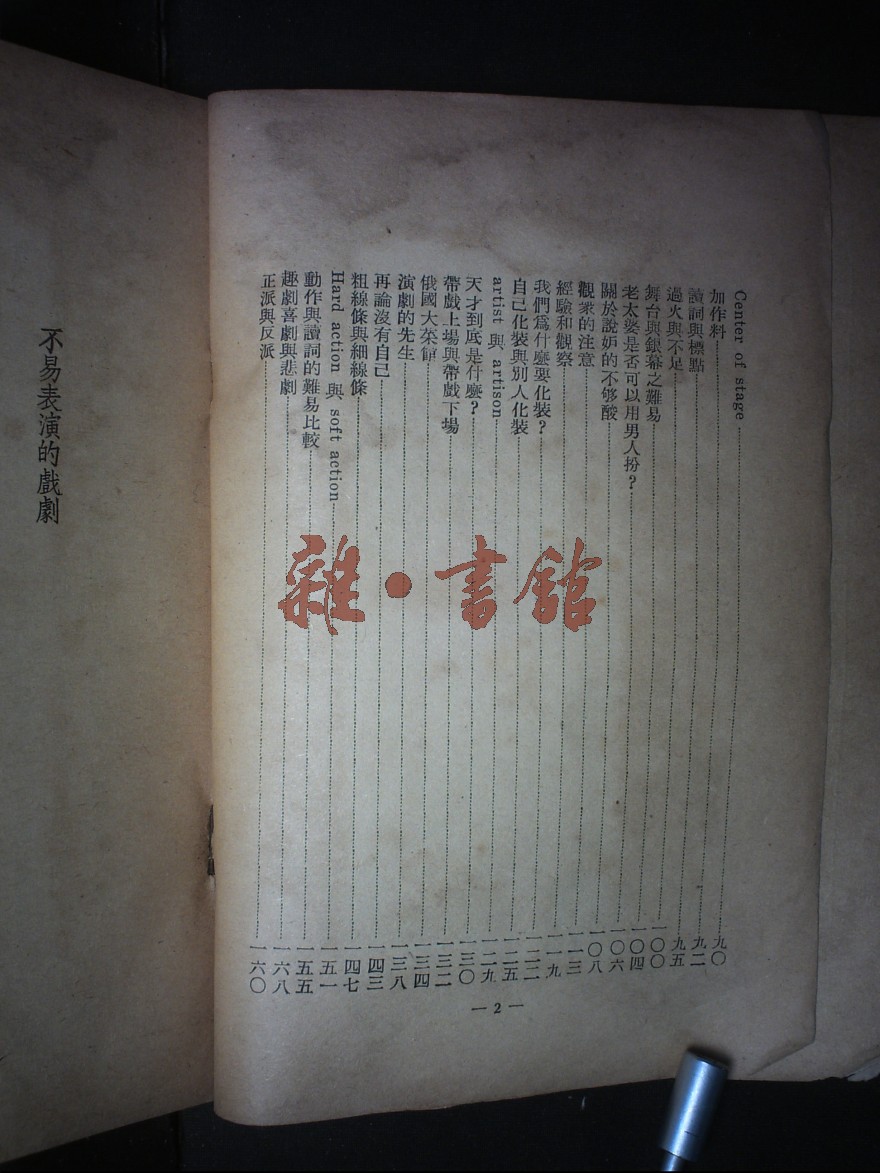 Center of stage 九〇
加作料 九二
讀詞與標點 九五
過火與不足 一〇〇
舞台與銀幕之難易 一〇四
老太婆是否可以用男人扮? 一〇六
關於說妒的不够酸 一〇八
觀衆的注意 一一三
經驗和觀察 一一九
我們爲什麼要化裝? 一二二
自己化裝與別人化裝 一二五
artist 與 artison 一二九
天才到底是什麼? 一三〇
帶戲上場與帶戲下場 一三二
俄國大菜館 一三四
演劇的先生 一三八
再論沒有自己 一四三
粗線條與細線條 一四七
Hard action 與 soft action 一五一
動作與讀詞的難易比較 一五五
趣劇喜劇與悲劇 一六八
正派與反派 一六〇
— 2 —
不易表演的戲劇
雜·書館